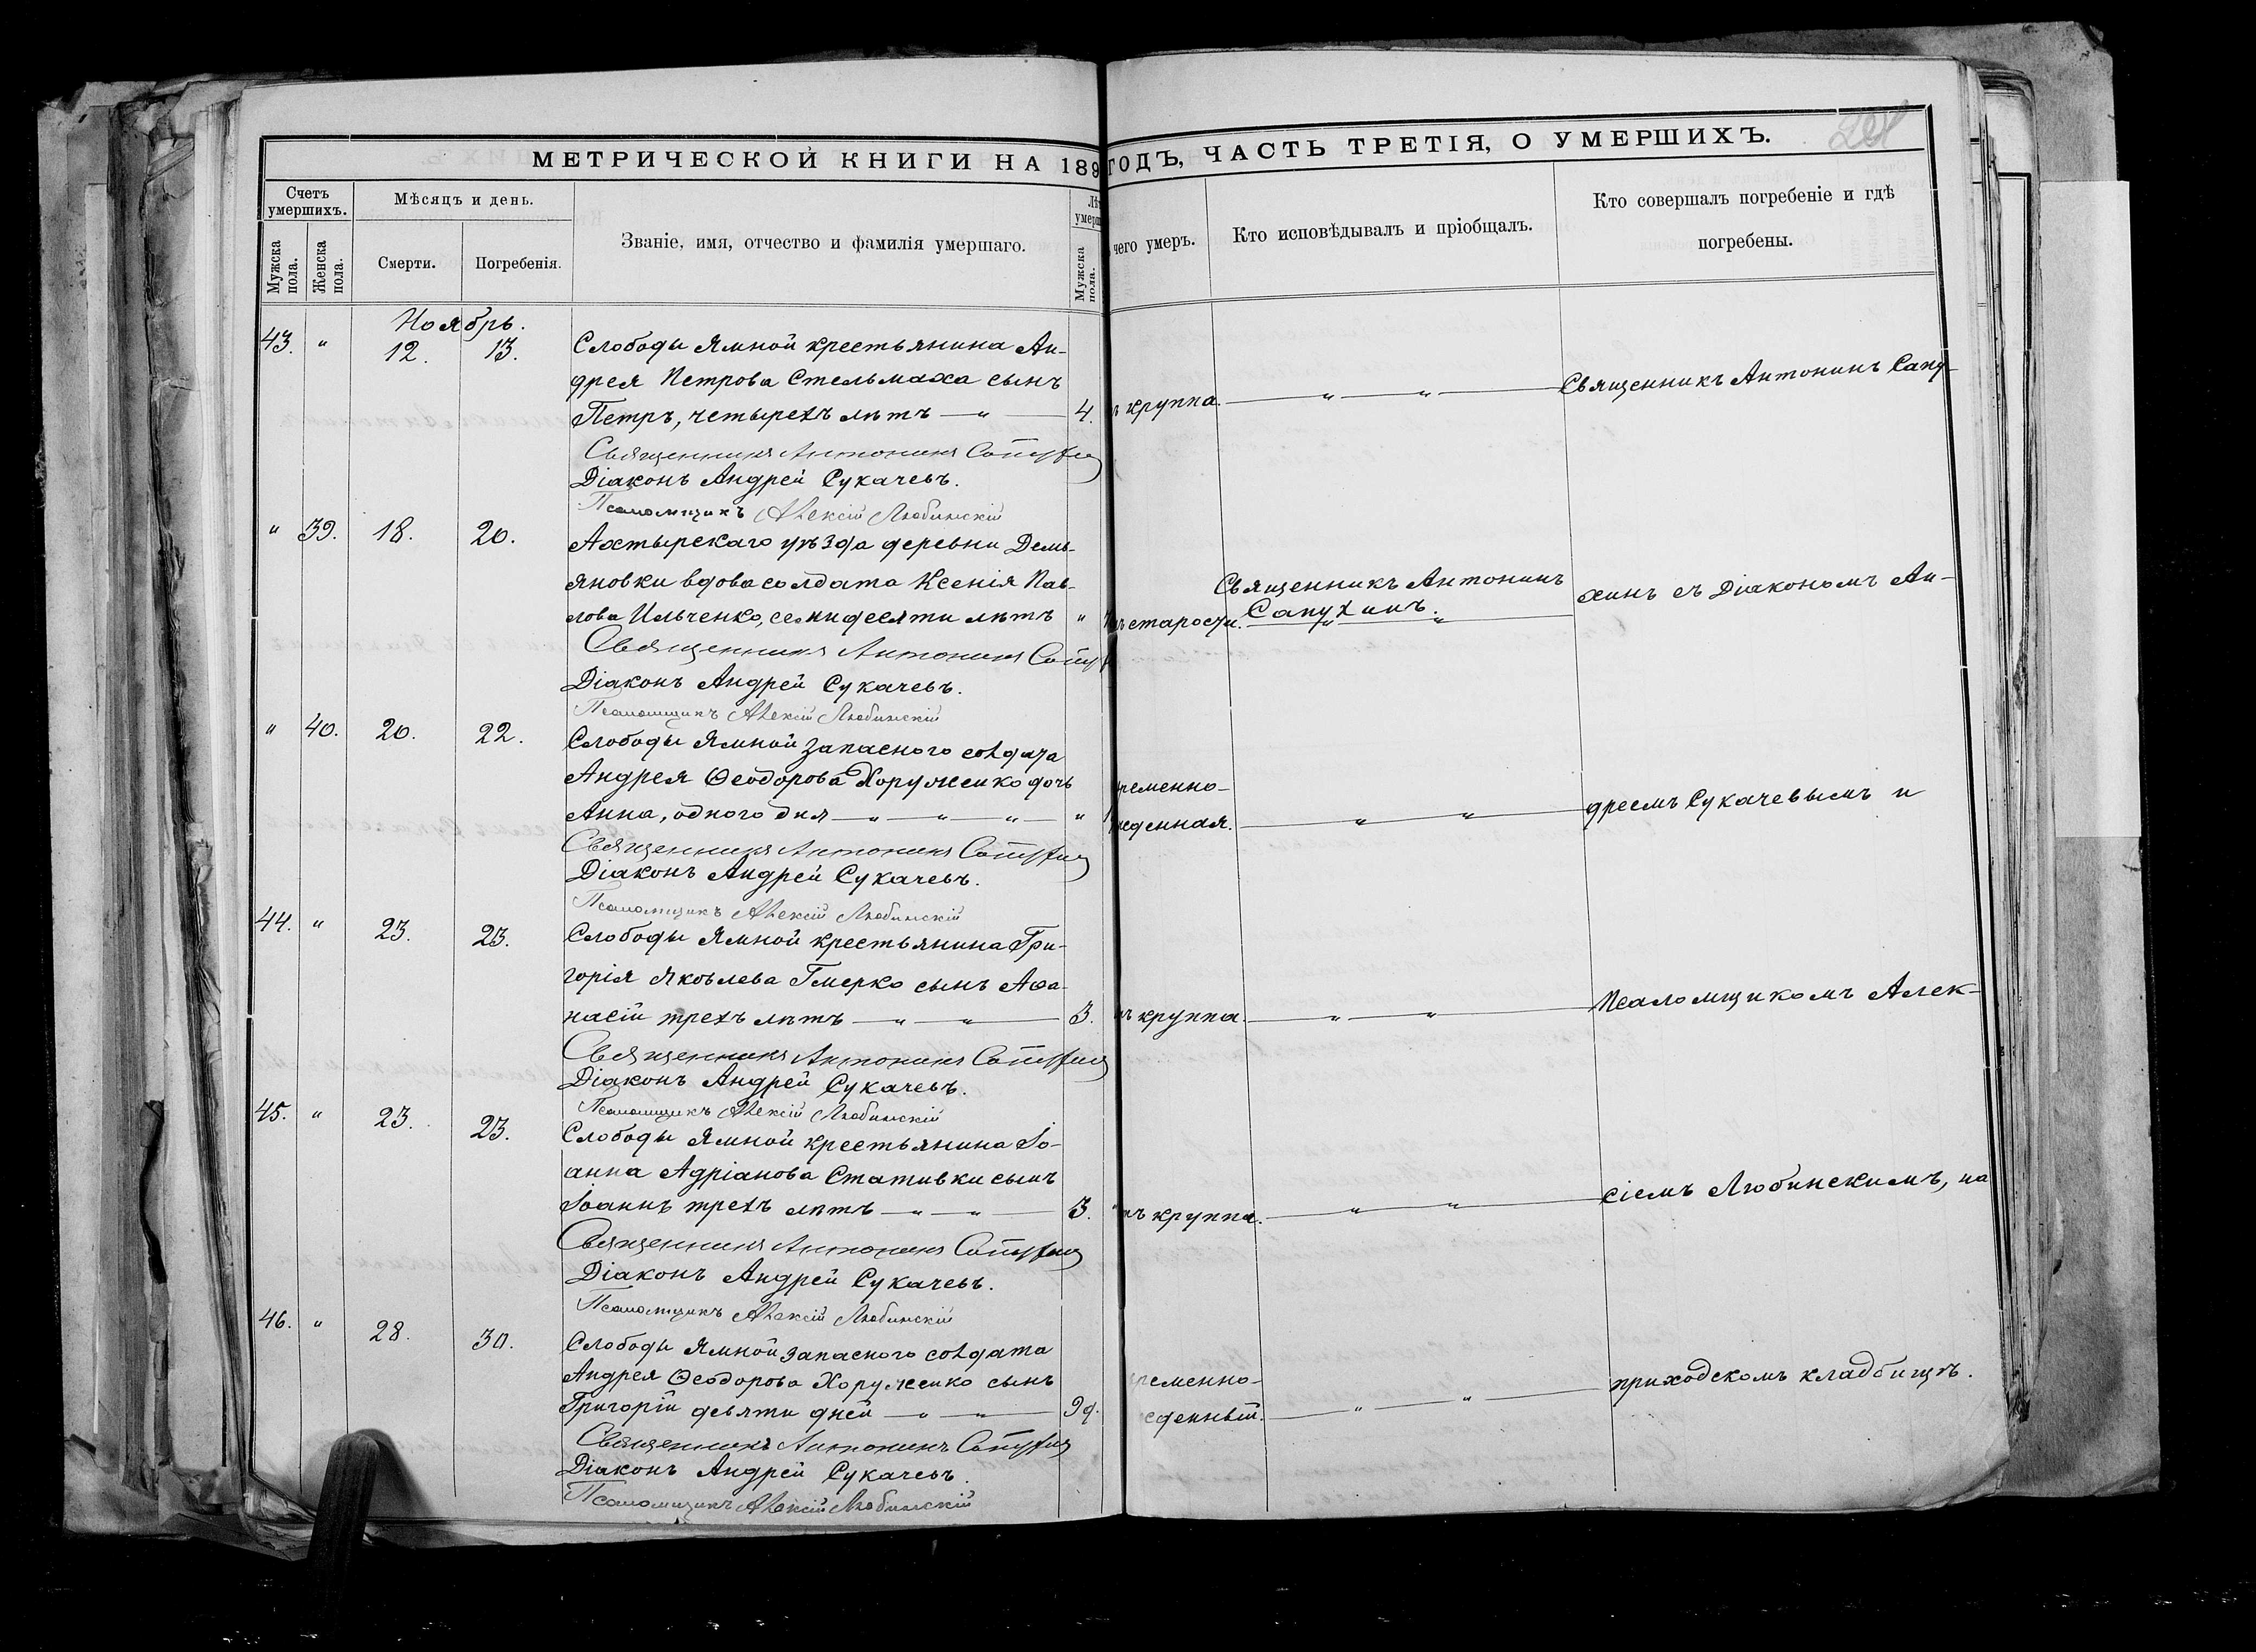 МЕТРИЧЕСКОЙ КНИГИ НА 189
ГОДЪ, ЧАСТЬ ТРЕТІЯ, О УМЕРШИХЪ.
Счетъ умершихъ.
Мѣсяцъ и день.
Званіе, имя, отчество и фамилія умершаго.
Мужска пола.
Женска пола.
Смерти.
Погребенія.
Мужска пола.
чего умеръ.
Кто исповѣдывалъ и пріобщалъ.
Кто совершалъ погребеніе и гдѣ
погребены.
Ноябрь.
43. " 12. 13.
Слободы Ямной крестьянина Ан-
дрея Петрова Стельмаха сынъ
Петръ, четырехъ лѣтъ — " — 4.
круппа. — " — " —
Священникъ Антонинъ Сапу-
Священникъ Антонинъ
Діаконъ Андрей Сукачевъ.
Псаломщикъ Алексій Любинскій
" 39. 18. 20.
Ахтырскаго уѣзда деревни Демь-
яновки вдова солдата Ксенія Пав-
лова Ильченко, семидесяти лѣтъ "
старости.
Священникъ Антонинъ
Сапухинъ. " "
хинъ съ Діакономъ Ан-
Священникъ Антонинъ
Діаконъ Андрей Сукачевъ.
Псаломщикъ Алексій Любинскій
" 40. 20. 22.
Слободы Ямной запасного солдата
Андрея Ѳеодорова Хоруженко дочь
Анна, одного дня — " — " — " — "
ременно-
жденная. — " — " —
дреемъ Сукачевымъ и
Священникъ Антонинъ
Діаконъ Андрей Сукачевъ.
Псаломщикъ Алексій Любинскій
44. " 23. 23.
Слободы Ямной крестьянина Гри-
горія Яковлева Гмерко сынъ Аѳа-
насій трехъ лѣтъ — " — " — 3.
круппа. — " — " —
Псаломщикомъ Алек-
Священникъ Антонинъ
Діаконъ Андрей Сукачевъ.
Псаломщикъ Алексій Любинскій
45. " 23. 23.
Слободы Ямной крестьянина Іо-
анна Адріанова Стативки сынъ
Іоаннъ трехъ лѣтъ — " — " — 3.
круппа. — " — " —
сіемъ Любинскимъ, на
Священникъ Антонинъ
Діаконъ Андрей Сукачевъ.
Псаломщикъ Алексій Любинскій
46. " 28. 30.
Слободы Ямной запасного солдата
Андрея Ѳеодорова Хоруженко сынъ
Григорій девяти дней — " — " — 9д.
ременно-
денный. — " — " —
приходскомъ кладбищѣ.
Священникъ Антонинъ
Діаконъ Андрей Сукачевъ.
Псаломщикъ Алексій Любинскій